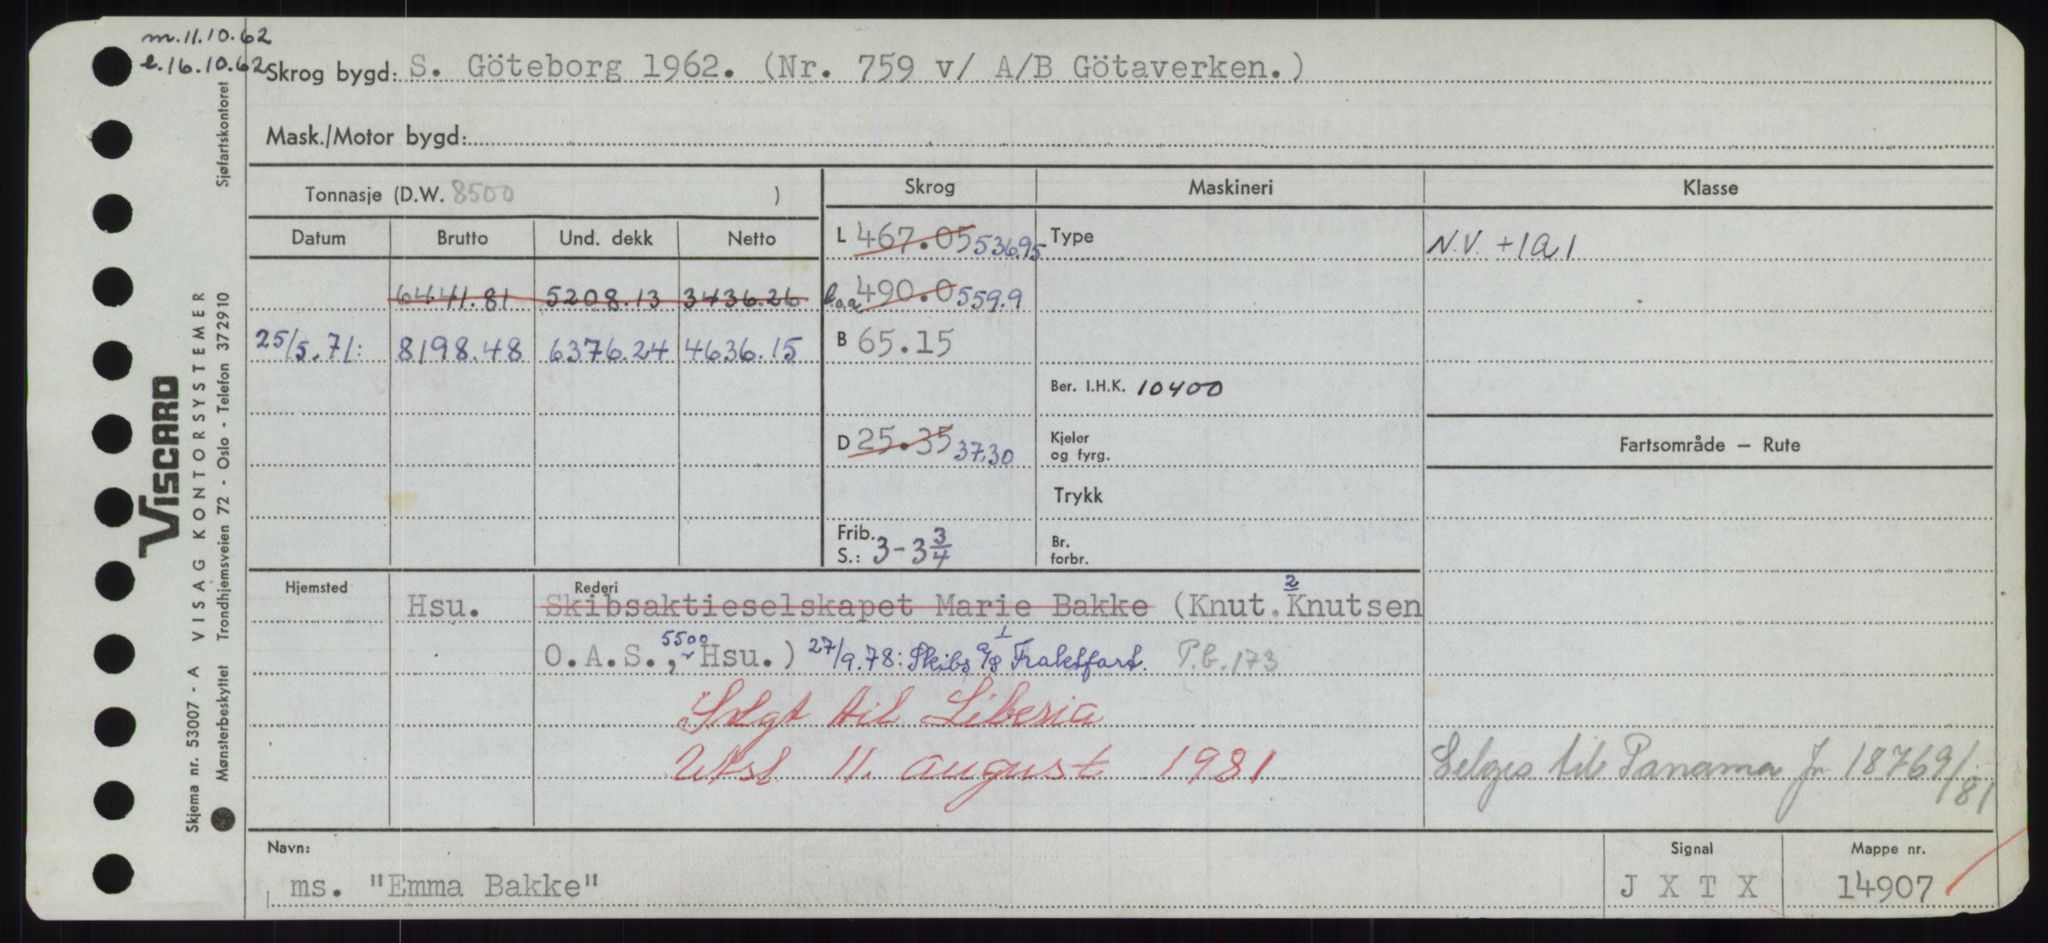 m.11.10.62
l.16.10.62
Skrog bygd: S. Göteborg 1962. (Nr. 759 v/ A/B Götaverken.)
Mask./Motor bygd:
Tonnasje (D.W. 8500 )
Skrog
Maskineri
Klasse
Datum
Brutto
Und. dekk
Netto
L 467.05 536.95
Type
N.V. +1A1
6441.81 5208.13 3436.26
l.o.a 490.0 559.9
25/5.71: 8198.48 6376.24 4636.15
B 65.15
Ber. I.H.K. 10400
D 25.35 37.30
Kjeler og fyrg.
Fartsområde — Rute
Trykk
Frib. S.: 3-3 3/4
Br. forbr.
Hjemsted
Rederi
2
Hsu. Skibsaktieselskapet Marie Bakke (Knut. Knutsen
O.A.S., 5500 Hsu.) 27/9.78: Skibs a/s Fraktfart. P.b. 173
Solgt til Liberia
Utsl 11. august 1981
Selges til Panama Jn 18769/81
Navn:
ms. "Emma Bakke"
Signal
J X T X
Mappe nr.
14907
Skjema nr. 53007 - A VISAG KONTORSYSTEMER Sjøfartskontoret
Mønsterbeskyttet Trondhjemsveien 72 - Oslo - Telefon 372910
VISCARD